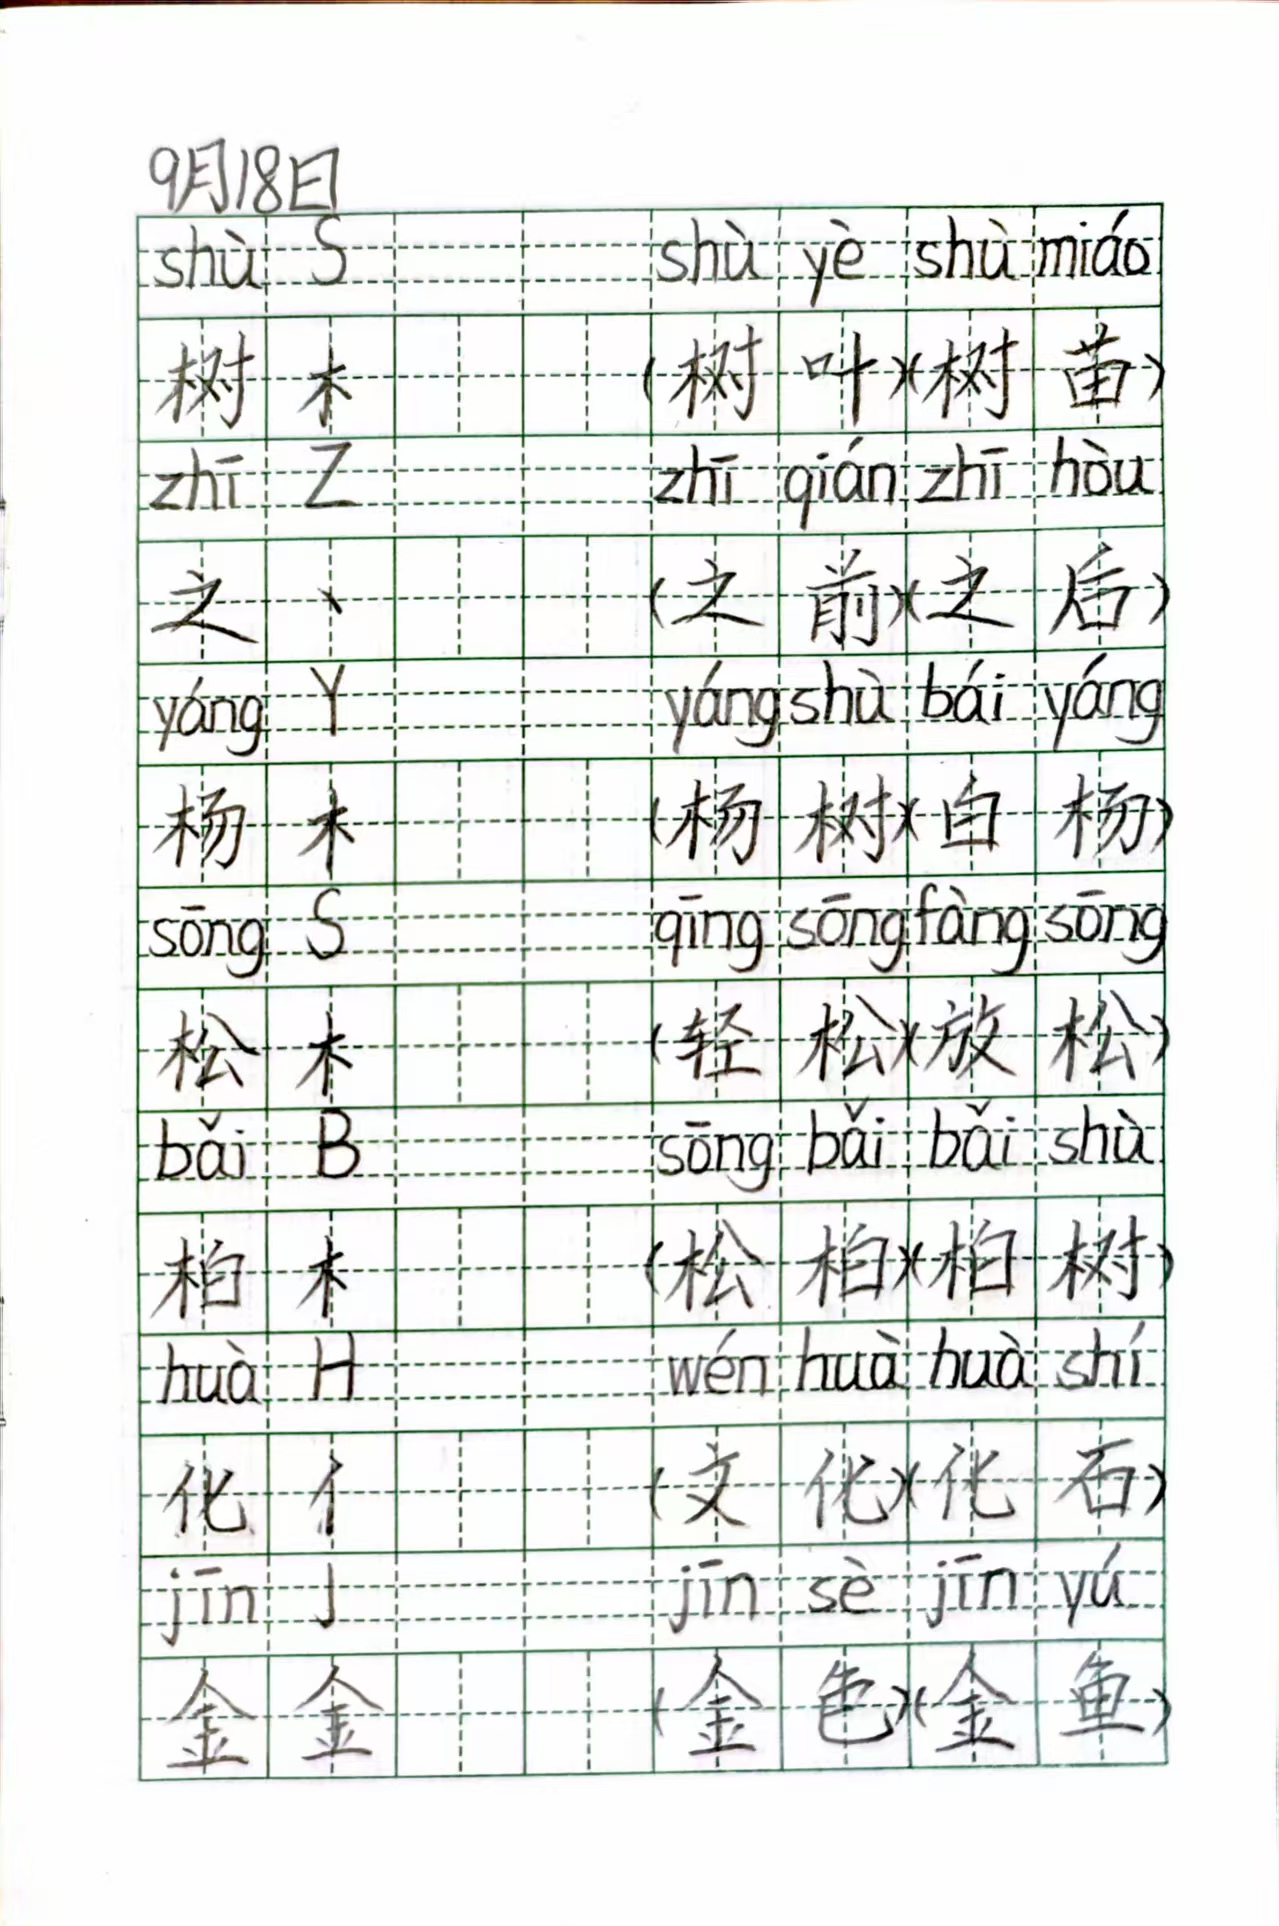 9月18日
shù S shù yè shù miáo
树 木 (树 叶)(树 苗)
zhī Z zhī qián zhī hòu
之 丶 (之 前)(之 后)
yáng Y yáng shù bái yáng
杨 木 (杨 树)(白 杨)
sōng S qīng sōng fàng sōng
松 木 (轻 松)(放 松)
bǎi B sōng bǎi bǎi shù
柏 木 (松 柏)(柏 树)
huà H wén huà huà shí
化 亻 (文 化)(化 石)
jīn J jīn sè jīn yú
金 金 (金 色)(金 鱼)